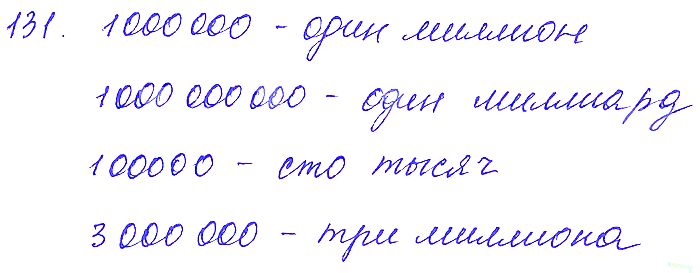 131. 1000 000 - один миллион
1000 000 000 - один миллиард
100000 - сто тысяч
3 000 000 - три миллиона